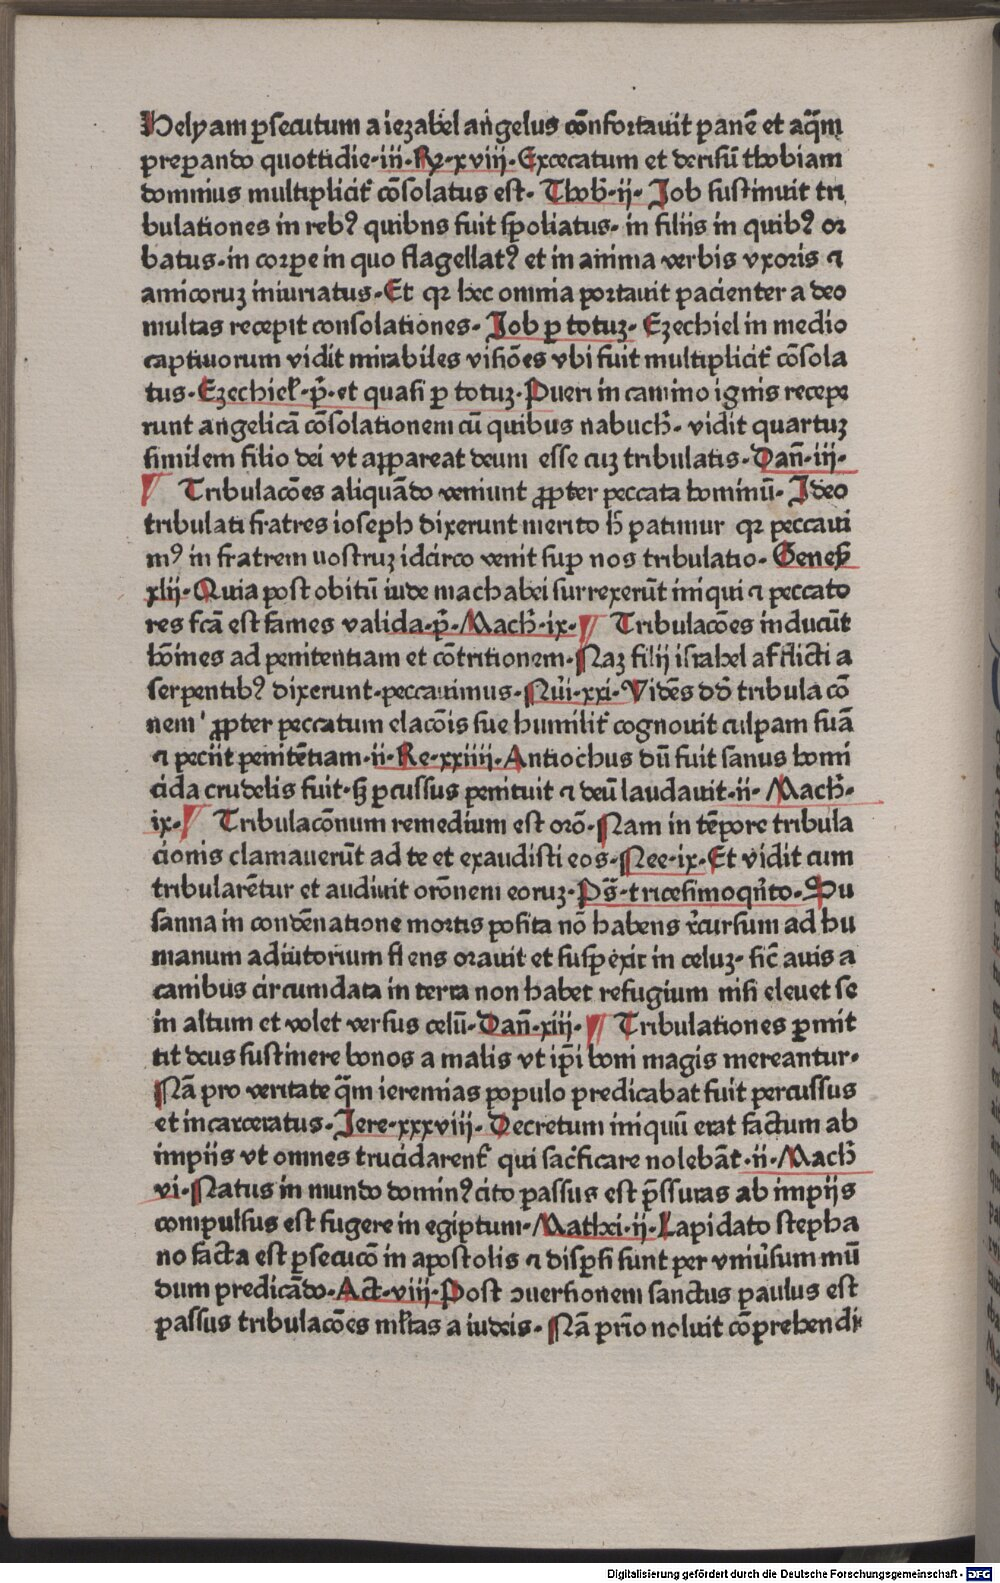 Helyam ꝑsecutum a iezabel angelus cōnfortauit panē et aq̄m
preparando quottidie·iii·Rꝫ·xviii·Excecatum et derisū thobiam
dominus multiplicit᷑ cōsolatus est· Thob᷑·ii· Job sustinuit tri
bulationes in rebꝰ quibns fuit spoliatus· in filiis in quibꝰ or
batus·in corpe in quo flagellatꝰ et in anima verbis vxoris ⁊
amicoruꝫ iniuriatus·Et qꝛ hec omnia portauit pacienter a deo
multas recepit consolationes· Job ꝑ totuꝫ· Ezechiel in medio
captiuorum vidit mirabiles visiōes vbi fuit multiplicit᷑ cōsola
tus·Ezechiel᷑·p᷑·et quasi ꝑ totuꝫ·Pueri in camino ignis recepe
runt angelicā cōsolationem cū quibus nabuch᷑· vidit quartuꝫ
similem filio dei vt appareat deum esse cuꝫ tribulatis·Dan̄·iii·
¶ Tribulacōes aliquādo veniunt ꝓpter peccata hominū· Ideo
tribulati fratres ioseph dixerunt merito h᷑ patimur qꝛ peccaui
mꝰ in fratrem nostruꝫ idcirco venit suꝑ nos tribulatio· Genes᷑
xlii·Quia post obitū iude machabei surrexerūt iniqui ⁊ peccato
res fcā est fames valida·p᷑·Mach᷑·ix·¶ Tribulacōes inducūt
hōines ad penitentiam et cōtritionem·Naꝫ filij israhel afflicti a
serpentibꝰ dixerunt·peccauimus·Nu᷑i·xxi·Vidēs dd᷑ tribulacō
nem' ꝓpter peccatum elacōis sue humilit᷑ cognouit culpam suā
⁊ peciit penitētiam·ii·Re·xxiiii·Antiochus dū fuit sanus homi
cida crudelis fuit·sꝫ ꝑcussus penituit ⁊ deū laudauit·ii· Mach᷑·
ix·¶ Tribulacōnum remedium est orō·Nam in tēpore tribula
cionis clamauerūt ad te et exaudisti eos·Nee·ix·Et vidit cum
tribularētur et audiuit orōnem eoruꝫ·Ps̄·tricesimoqn᷑to·Su
sanna in condēnatione mortis posita nō habens r᷑cursum ad hu
manum adiutorium flens orauit et suspexit in celuꝫ· sic̄ auis a
canibus circumdata in terra non habet refugium nisi eleuet se
in altum et volet versus celū·Dan̄·xiii·¶ Tribulationes ꝑmit
tit deus sustinere bonos a malis vt ip̄i boni magis mereantur·
Nā pro veritate q̄m ieremias populo predicabat fuit percussus
et incarceratus·Jere·xxxviii·Decretum iniquū erat factum ab
impiis vt omnes trucidarent᷑ qui sac᷑ficare nolebāt·ii·Mach᷑
vi·Natus in mundo dominꝰ cito passus est p̄ssuras ab impijs
compulsus est fugere in egiptum·Mathei·ii·Lapidato stepha
no facta est ꝑsecucō in apostolis ⁊ disꝑsi sunt per vniu᷑sum mū
dum predicādo·Act·viii·Post ↄuersionem sanctus paulus est
passus tribulacōes ml᷑tas a iudeis· Nā prio᷑ noluit cōprehendi
Digitalisierung gefördert durch die Deutsche Forschungsgemeinschaft - DFG